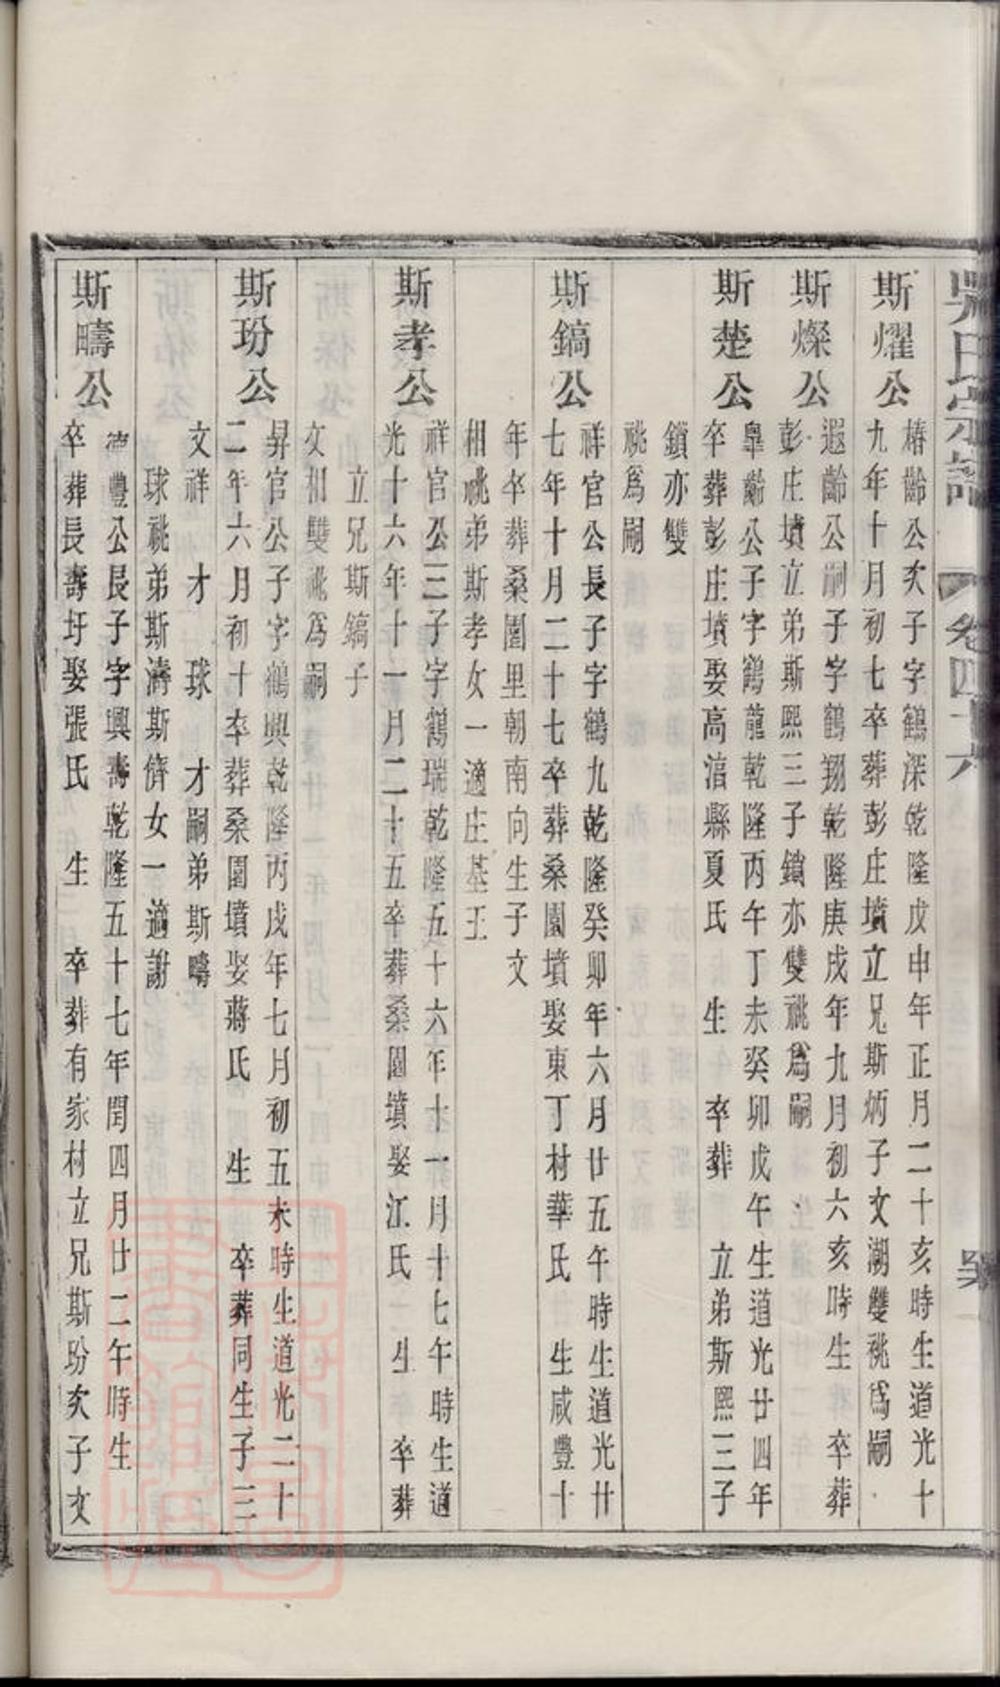 吳氏宗譜 卷四十六
斯燿公
椿齡公次子字鶴深乾隆戊申年正月二十亥時生道光十
九年十月初七卒葬彭庄墳立兄斯炳子文湖雙祧爲嗣
斯燦公
遐齡公嗣子字鶴翔乾隆庚戌年九月初六亥時生 卒葬
彭庄墳立弟斯熙三子鎖亦雙祧爲嗣
斯楚公
臯齡公子字鶴龍乾隆丙午丁未癸卯戊午生道光廿四年
卒葬彭庄墳娶高淯縣夏氏 生 卒葬 立弟斯熙三子
鎖亦雙
祧爲嗣
斯鎬公
祥官公長子字鶴九乾隆癸卯年六月廿五午時生道光廿
七年十月二十七卒葬桑園墳娶東丁村華氏 生咸豐十
年卒葬桑園里朝南向生子文
相祧弟斯孝女一適庄基王
斯孝公
祥官公三子字鶴瑞乾隆五十六年十一月十七午時生道
光十六年十一月二十五卒葬桑園墳娶江氏 生 卒葬
立兄斯鎬子
文相雙祧爲嗣
斯玢公
昇官公子字鶴興乾隆丙戌年七月初五未時生道光二十
二年六月初十卒葬桑園墳娶蔣氏 生 卒葬同生子三
文祥 才 球 才嗣弟斯疇
球祧弟斯濤斯儕女一適謝
斯疇公
德豐公長子字興壽乾隆五十七年閏四月廿二午時生
卒葬長壽圩娶張氏 生 卒葬有家村立兄斯玢次子文